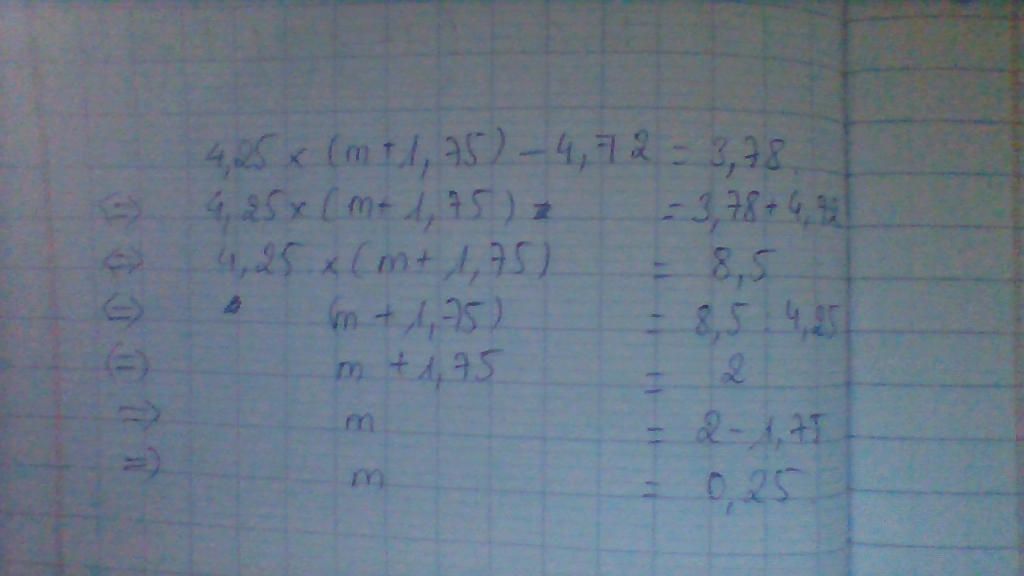 4,25 x (m+1,75) - 4,72 = 3,78
<=> 4,25 x (m+ 1,75) = 3,78+ 4,72
<=> 4,25 x (m+ 1,75) = 8,5
<=> (m + 1,75) = 8,5 : 4,25
<=> m + 1,75 = 2
=> m = 2 - 1,75
=> m = 0,25